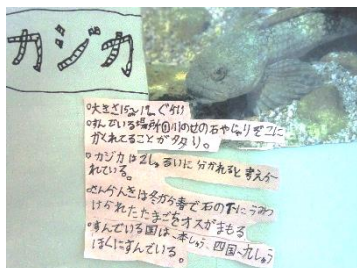 カジカ
・大きさ15cm～17cmぐらい
・すんでいる場所 川のせの石やじゃりぞこに
かくれてることが多い。
・カジカは2しゅるいに分かれると考えら
れている。
・さんらんきは冬から春で石の下にうみつ
けられたたまごをオスがまもる
・すんでいる国は、本しゅう、四国、九しゅう
ほくにすんでいる。